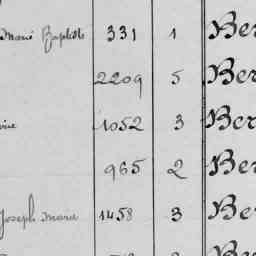 Marie Baptiste 331 1 Ber
2209 5 Ber
ine 1052 3 Ber
965 2 Ber
Joseph Marie 1458 3 Ber
Ber